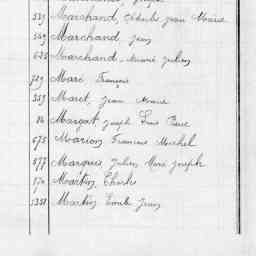 Marchand, Charles Jean Marie
569 Marchand Jean
625 Marchand, André Julien
729 Maré François
559 Maret, Jean Marie
84 Margat Joseph Louis Pierre
675 Marion Francois Michel
877 Marquis, Julien René Joseph
570 Martin, Charles
1351 Martin Emile Jean